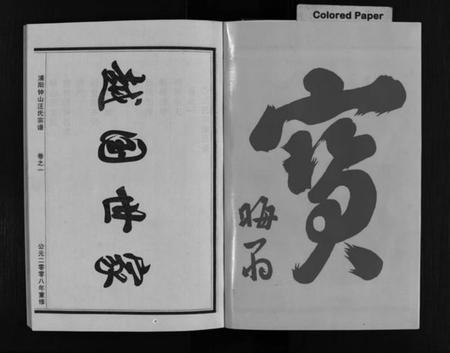 Colored Paper
浦阳钟山汪氏宗谱 卷之一 公元二零零八年重修
越国世家
寶
晦翁